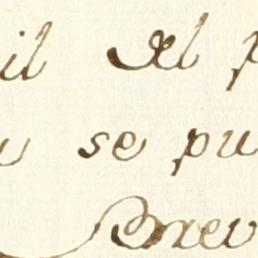 il del p
se pu
Brev